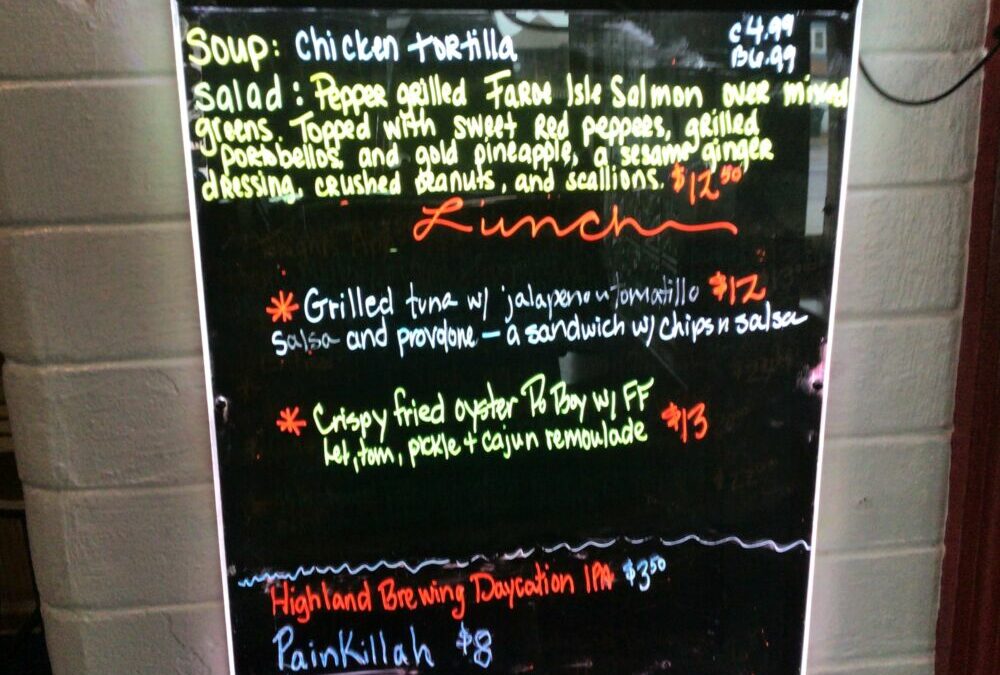 Soup: Chicken tortilla C 4.99
B 6.99
Salad: Pepper grilled Faroe Isle Salmon over mixed
greens. Topped with sweet Red peppers, grilled
portobellos and gold pineapple, a sesame ginger
dressing, crushed peanuts, and scallions. $12 50
Lunch
* Grilled tuna w/ jalapeno n tomatillo $12
salsa and provolone - a sandwich w/ chips n salsa
* Crispy fried oyster Po Boy w/ FF $13
Let, tom, pickle + cajun remoulade
Highland Brewing Daycation IPA $3 50
PainKillah $8